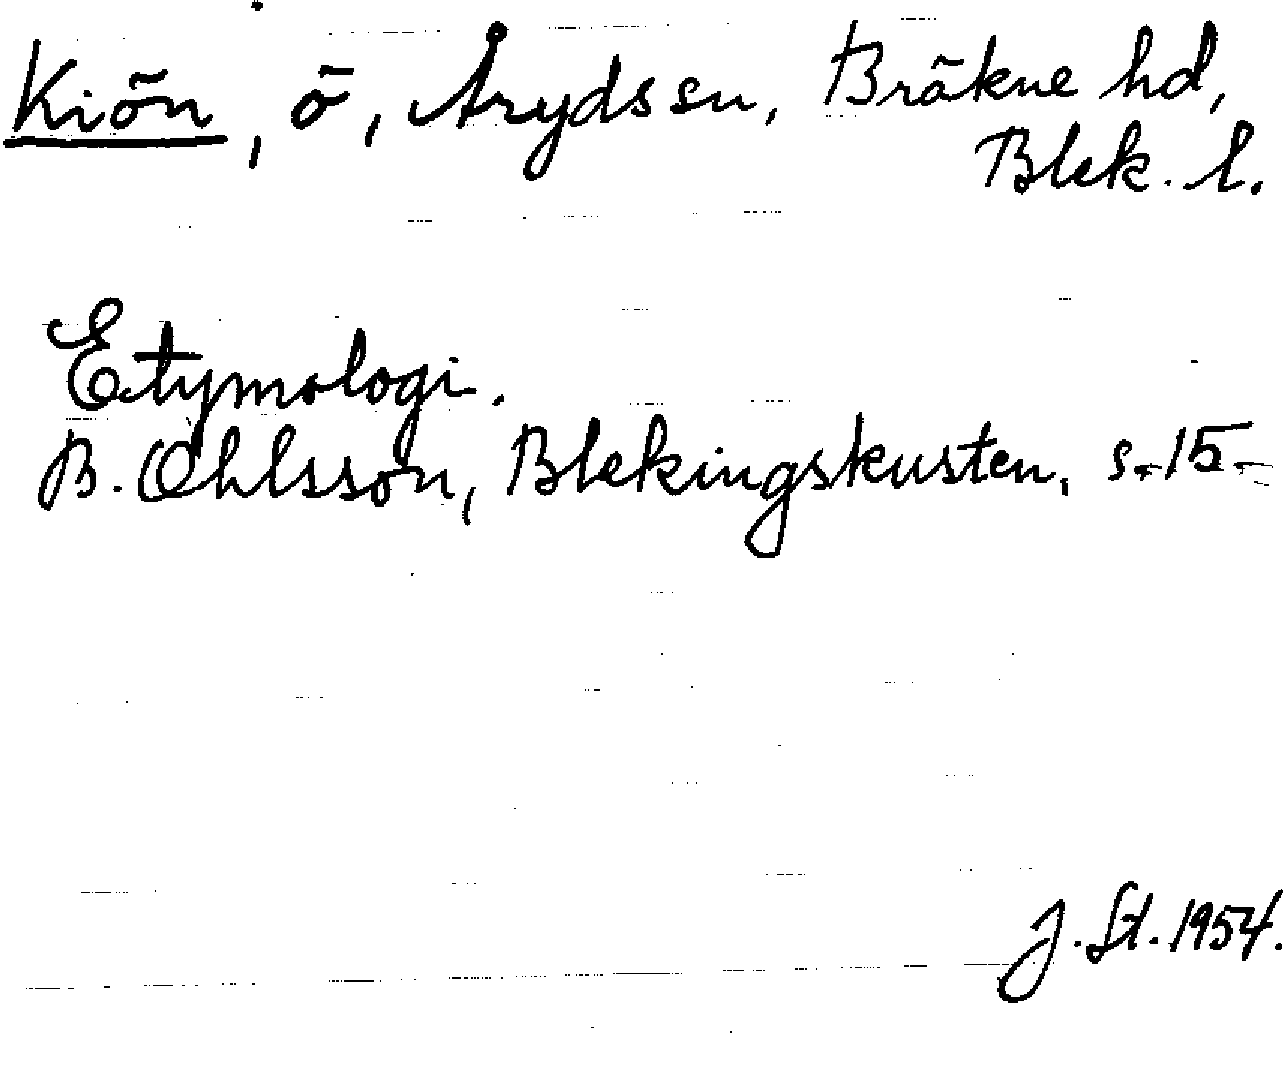 Kiön, ö, Åryds sn, Bräkne hd,
Blek. l.
Etymologi.
B. Ohlsson, Blekingskusten, s. 15.
J. St. 1954.